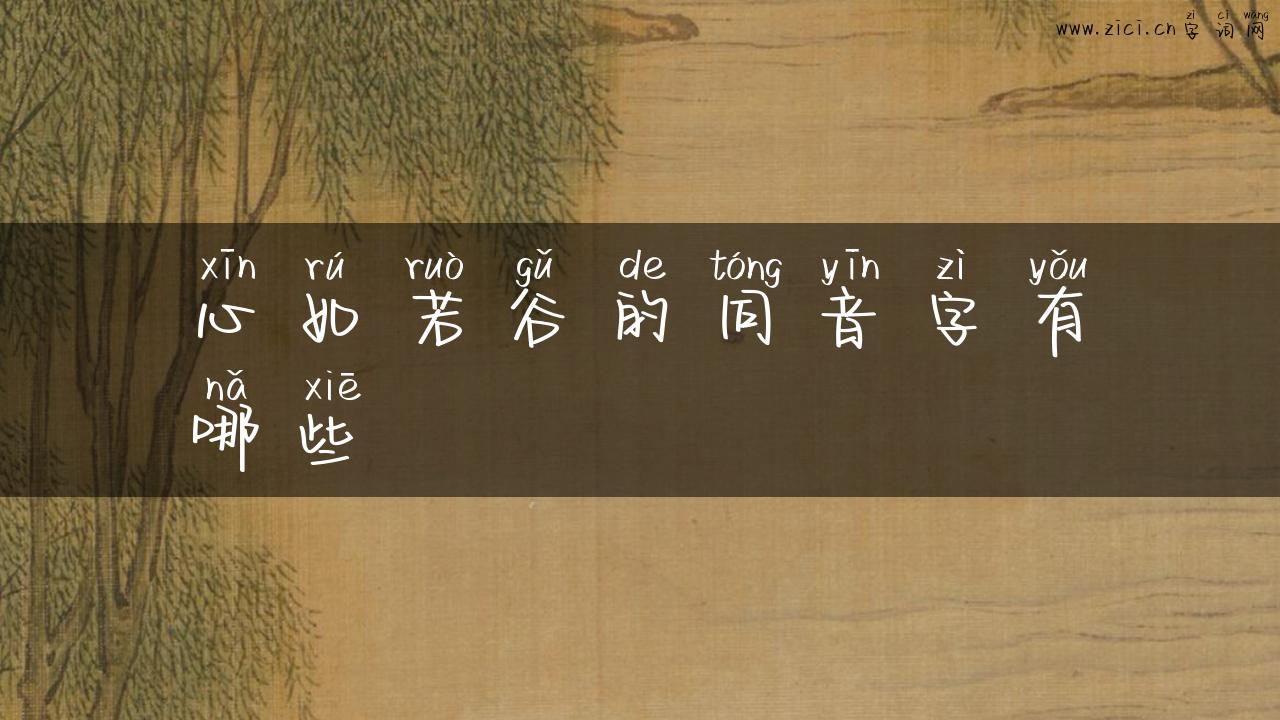 zì cí wǎng
www.zici.cn字词网
xīn rú ruò gǔ de tóng yīn zì yǒu
心如若谷的同音字有
nǎ xiē
哪些